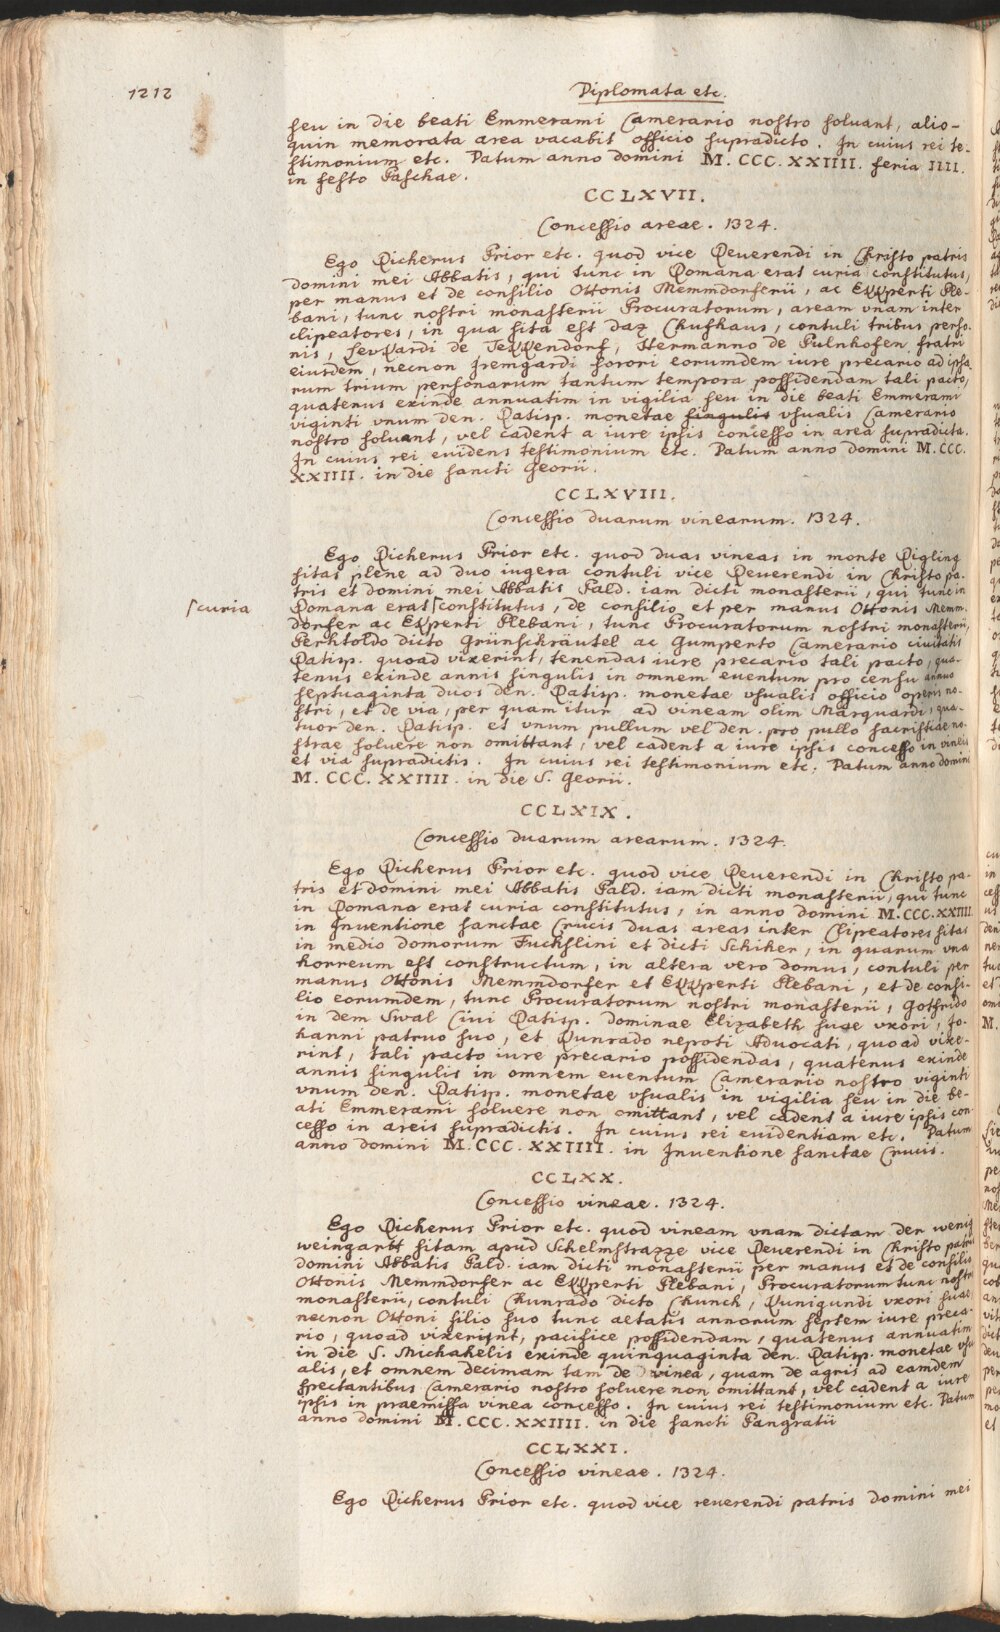 1212
Diplomata etc.
seu in die beati Emmerami Camerario nostro soluant, alio-
quin memorata area vacabit officio supradicto. In cuius rei te-
stimonium etc. Datum anno domini M. CCC. XXIIII. feria IIII.
in festo Paschae.
CCLXVII.
Concessio areae. 1324.
Ego Richerus Prior etc. quod vice Reuerendi in Christo patris
domini mei Abbatis, qui tunc in Romana erat curia constitutus,
per manus et de consilio Ottonis Memmdorferii, ac Ekkperti Ple-
bani, tunc nostri monasterii Procuratorum, aream vnam inter
clipeatores, in qua sita est daz Chufhaus, contuli tribus perso-
nis, de Hermanno de Pulnhofen fratri
eiusdem, necnon Iremgardi sorori eorumdem iure precario ad ipso-
rum trium personarum tantum tempora possidendam tali pacto,
quatenus exinde annuatim in vigilia seu in die beati Emmerami
viginti vnum den. Ratisp. monetae singulis vsualis Camerario
nostro soluant, vel cadent a iure ipsis concesso in area supradicta.
In cuius rei euidens testimonium etc. Datum anno domini M. CCC.
XXIIII. in die sancti Georii.
CCLXVIII.
Concessio duarum vinearum. 1324.
Ego Richerus Prior etc. quod duas vineas in monte Rigling
sitas plene ad duo iugera contuli vice Reuerendi in Christo pa-
tris et domini mei Abbatis Bald. iam dicti monasterii, qui tunc in
⌈curia
Romana erat ⌈constitutus, de consilio et per manus Ottonis Memm-
dorfer ac Ekkperti Plebani, tunc Procuratorum nostri monasterii,
Perhtoldo dicto Grünschräutel ac Gumperto Camerario ciuitatis
Ratisp. quoad vixerint, tenendas iure precario tali pacto, qua-
tenus exinde annis singulis in omnem euentum pro censu annuo
septuaginta duos den. Ratisp. monetae vsualis officio operis no-
stri, et de via, per quam itur ad vineam olim Marquardi, qua-
tuor den. Ratisp. et vnum pullum vel den. pro pullo sacristiae no-
strae soluere non omittant, vel cadent a iure ipsis concesso in vineis
et via supradictis. In cuius rei testimonium etc. Datum anno domini
M. CCC. XXIIII. in die S. Georii.
CCLXIX.
Concessio duarum arearum. 1324.
Ego Richerus Prior etc. quod vice Reuerendi in Christo pa-
tris et domini mei Abbatis Bald. iam dicti monasterii, qui tunc
in Romana erat curia constitutus, in anno domini M. CCC. XXIIII
in Inuentione sanctae Crucis duas areas inter Clipeatores sitas
in medio domorum Fuchslini et dicti Schiher, in quarum vna
horreum est constructum, in altera vero domus, contuli per
manus Ottonis Memmdorfer et Ekkperti Plebani, et de consi-
lio eorumdem, tunc Procuratorum nostri monasterii, Gotfrido
in dem Swal Ciui Ratisp. dominae Elizabeth suae vxori, Jo-
hanni patruo suo, et Kunrado nepoti Aduocati, quoad vixe-
rint, tali pacto iure precario possidendas, quatenus exinde
annis singulis in omnem euentum Camerario nostro viginti
vnum den. Ratisp. monetae vsualis in vigilia seu in die be-
ati Emmerami soluere non omittant, vel cadent a iure ipsis con-
cesso in areis supradictis. In cuius rei euidentiam etc. Datum
anno domini M. CCC. XXIIII. in Inuentione sanctae Crucis.
CCLXX.
Concessio vineae. 1324.
Ego Richerus Prior etc. quod vineam vnam dictam der wenig
weingartt sitam apud Schelmstrazze vice Reuerendi in Christo patris
domini Abbatis Bald. iam dicti monasterii per manus et de consilio
Ottonis Memmdorfer ac Ekkperti Plebani, Procuratorum tunc nostri
monasterii, contuli Chunrado dicto Chunch, Kunigundi vxori suae,
necnon Ottoni filio suo tunc aetatis annorum septem iure preca-
rio, quoad vixerint, pacifice possidendam, quatenus annuatim
in die S. Michahelis exinde quinquaginta den. Ratisp. monetae vsu-
alis, et omnem decimam tam de vinea, quam de agris ad eamdem
spectantibus Camerario nostro soluere non omittant, vel cadent a iure
ipsis in praemissa vinea concesso. In cuius rei testimonium etc. Datum
anno domini M. CCC. XXIIII. in die sancti Pangratii
CCLXXI.
Concessio vineae. 1324.
Ego Richerus Prior etc. quod vice reuerendi patris domini mei